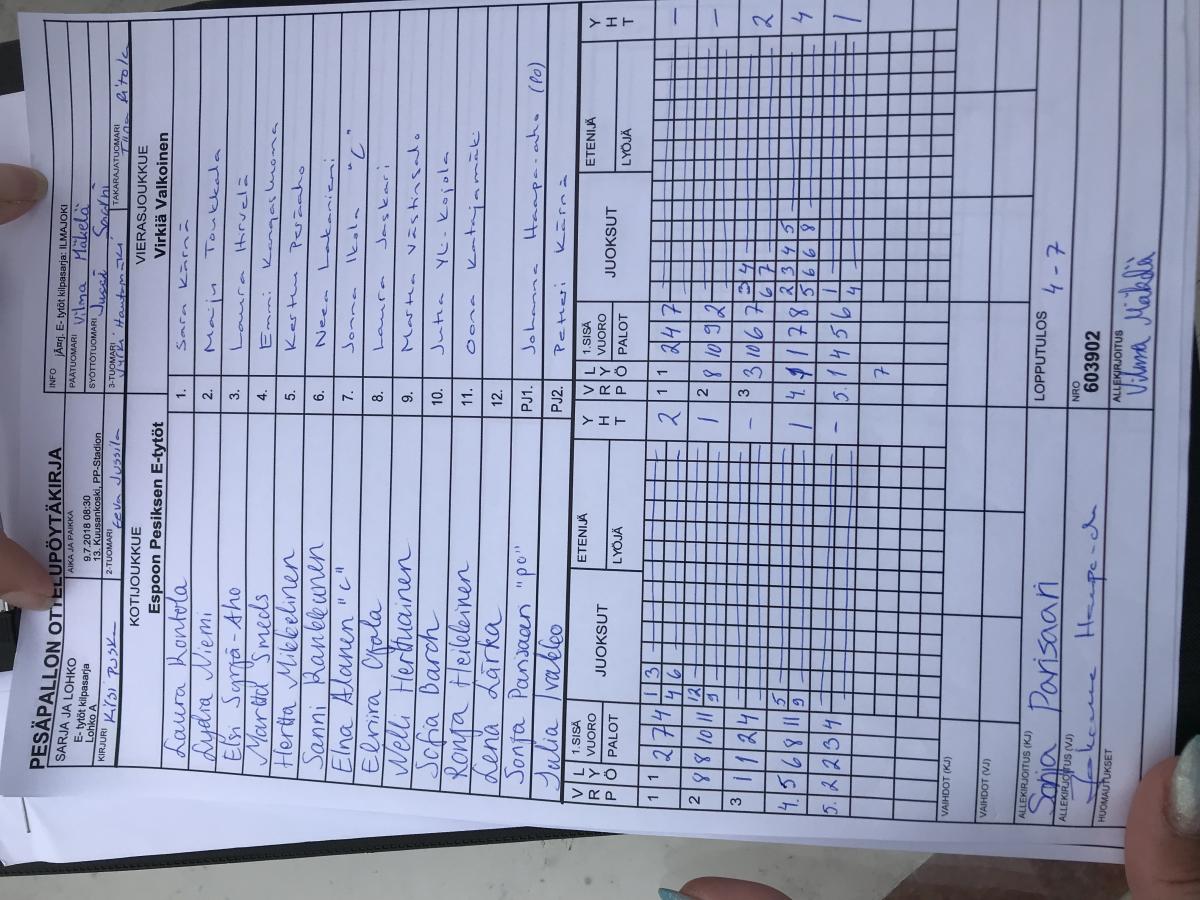 PESÄPALLON OTTELUPÖYTÄKIRJA
SARJA JA LOHKO
E- tytöt kilpasarja
Lohko A
AIKA JA PAIKKA
9.7.2018 08:30
13. Kuusankoski, PP-Stadion
INFO
E- tytöt kilpasarja: ILMAJOKI
PÄÄTUOMARI Vilma Mäkelä
SYÖTTÖTUOMARI Jussi
KIRJURI
2-TUOMARI Eeva Jussila
3-TUOMARI Jyrki Hautamäki
TAKARAJATUOMARI Tiina Ritola
KOTIJOUKKUE
Espoon Pesiksen E-tytöt
VIERASJOUKKUE
Virkiä Valkoinen
Laura Kontola 1. Sara Kärnä
Lydia Niemi 2. Maiju Toukkala
Elsi Syrjä-Aho 3. Laura Hirvelä
Martta Smeds 4. Emmi Kangasluoma
Hertta Mikkelinen 5. Kerttu Peräaho
Sanni Rankkinen 6. Neea Lakaniemi
Elna Alanen "c" 7. Jonna Ikola "C"
Eerira Ojala 8. Laura Jaskari
Nelli Herttuainen 9. Martta Västinsalo
Sofia Barch 10. Jutta Yli-Kojola
Ronja Heileleinen 11. Oona Katajamäki
Lenä Lärka 12.
Sonja Parisaan "po" PJ1. Johanna Haapa-aho (PO)
Julia PJ2. Petteri Kärnä
VRP LYÖ 1.SISÄ VUORO PALOT JUOKSUT ETENIJÄ LYÖJÄ YHT
VRP LYÖ 1.SISÄ VUORO PALOT JUOKSUT ETENIJÄ LYÖJÄ YHT
1 1 2 7 4 1 3 2 1 1 2 4 7 -
4 6
2 8 8 10 11 12 1 2 8 10 9 2 -
9
3 1 1 2 4 - 3 3 10 6 7 3 4 2
6 7
4. 5 6 8 11 5 1 4. 1 1 7 8 2 3 4 5 4
9 5 6 6 8
5. 2 2 3 4 - 5. 1 4 5 6 1 1
4
7
VAIHDOT (KJ)
VAIHDOT (VJ)
ALLEKIRJOITUS (KJ)
Sonja Parisaan
LOPPUTULOS 4-7
ALLEKIRJOITUS (VJ)
Johanna Haapa-aho
NRO
603902
HUOMAUTUKSET
ALLEKIRJOITUS
Vilma Mäkelä